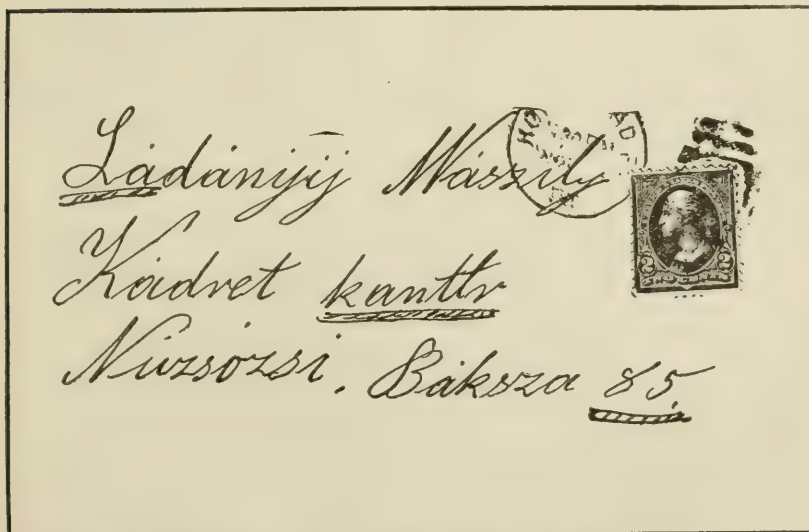 Ládányij Mászily
Kádvet kanttr
Nÿuzsózsi, Báksza 85
2 2